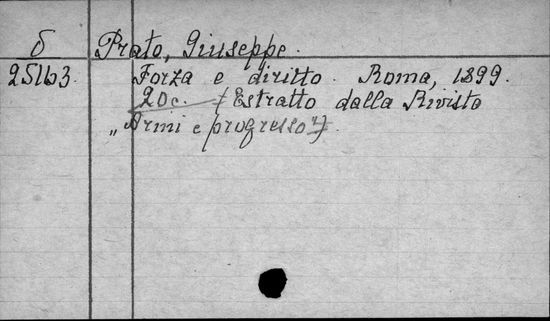 δ Prato, Giuseppe.
25163. Forza e diritto. Roma, 1899.
20c. (Estratto dalla Rivista
„Armi e progresso")